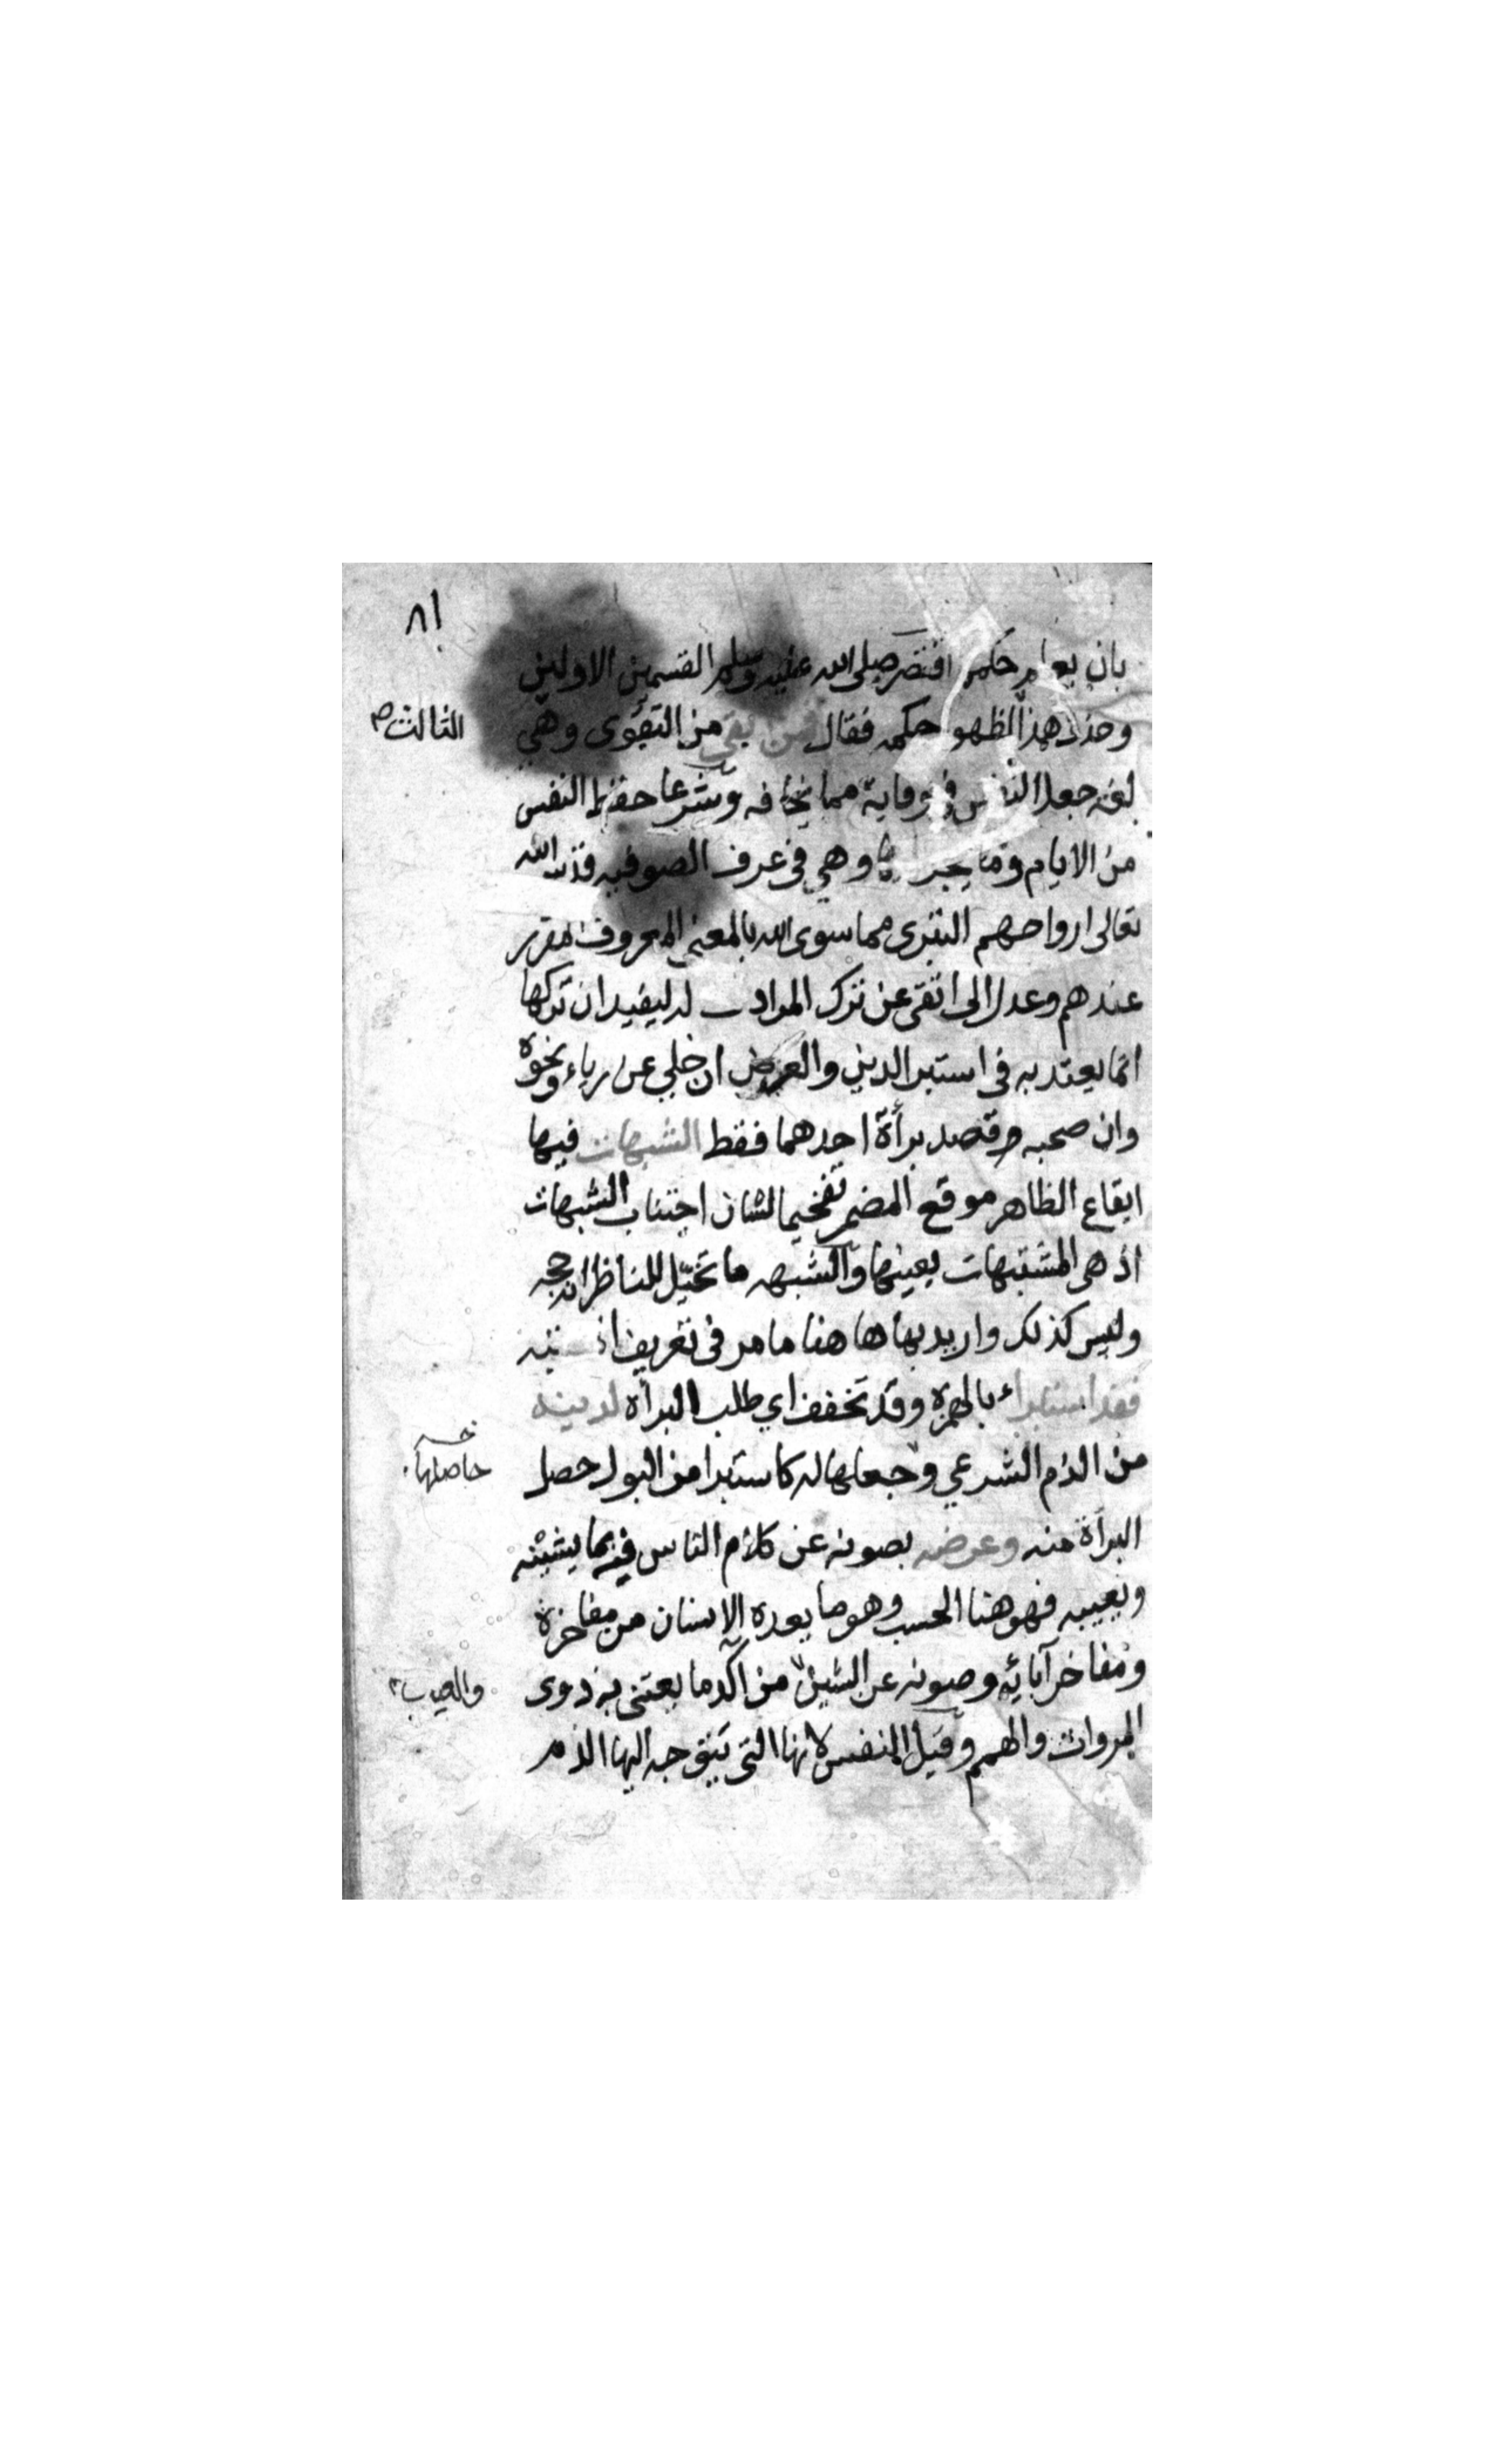 ٨١
بان يعلم حكمه اقتصر صلى الله عليه وسلم القسمين الاولين
وحذف هذا لظهور حكمه فقال فمن اتقى من التقوى وهي
الثالث صح
لغة جعل النفس في وقاية مما يخافه وشرعا حفظ النفس
من الاثام وما يجر وهي في عرف الصوفيه قدس الله
تعالى ارواحهم التبرى مما سوى الله بالمعنى المعروف المقرر
عندهم وعدل الى اتقى عن ترك المرادف له ليفيد ان تركها
انما يعتد به في استبرا الدين والعرض ان خلي عن رياء ونحوه
وان صحبه قصد برأة احدهما فقط الشبهات فيها
ايقاع الظاهر موقع المضمر تفخيما لشان اجتناب الشبهات
اذ هي المشتبهات بعينها والشبهه ما تخيل للناظر انه حجه
وليس كذلك واريد بها هاهنا ما مر في تعريف
فقد استبراء بالهمزه وقد تخفف اي طلب البرأه لدينه
من الذم الشرعي وجعلها له كاستبرا من البول حصل
حاصلها
البرأة منه وعرضه بصونه عن كلام الناس فيه بما يشينه
ويعيبه فهو هنا الحسب وهو ما يعده الانسان من مفاخره
ومفاخر آبائه وصونه عن الشين من آكد ما يعتنى به ذوى
والعيب
المروات والهمم وقيل النفس لانها التي يتوجه اليها الذم